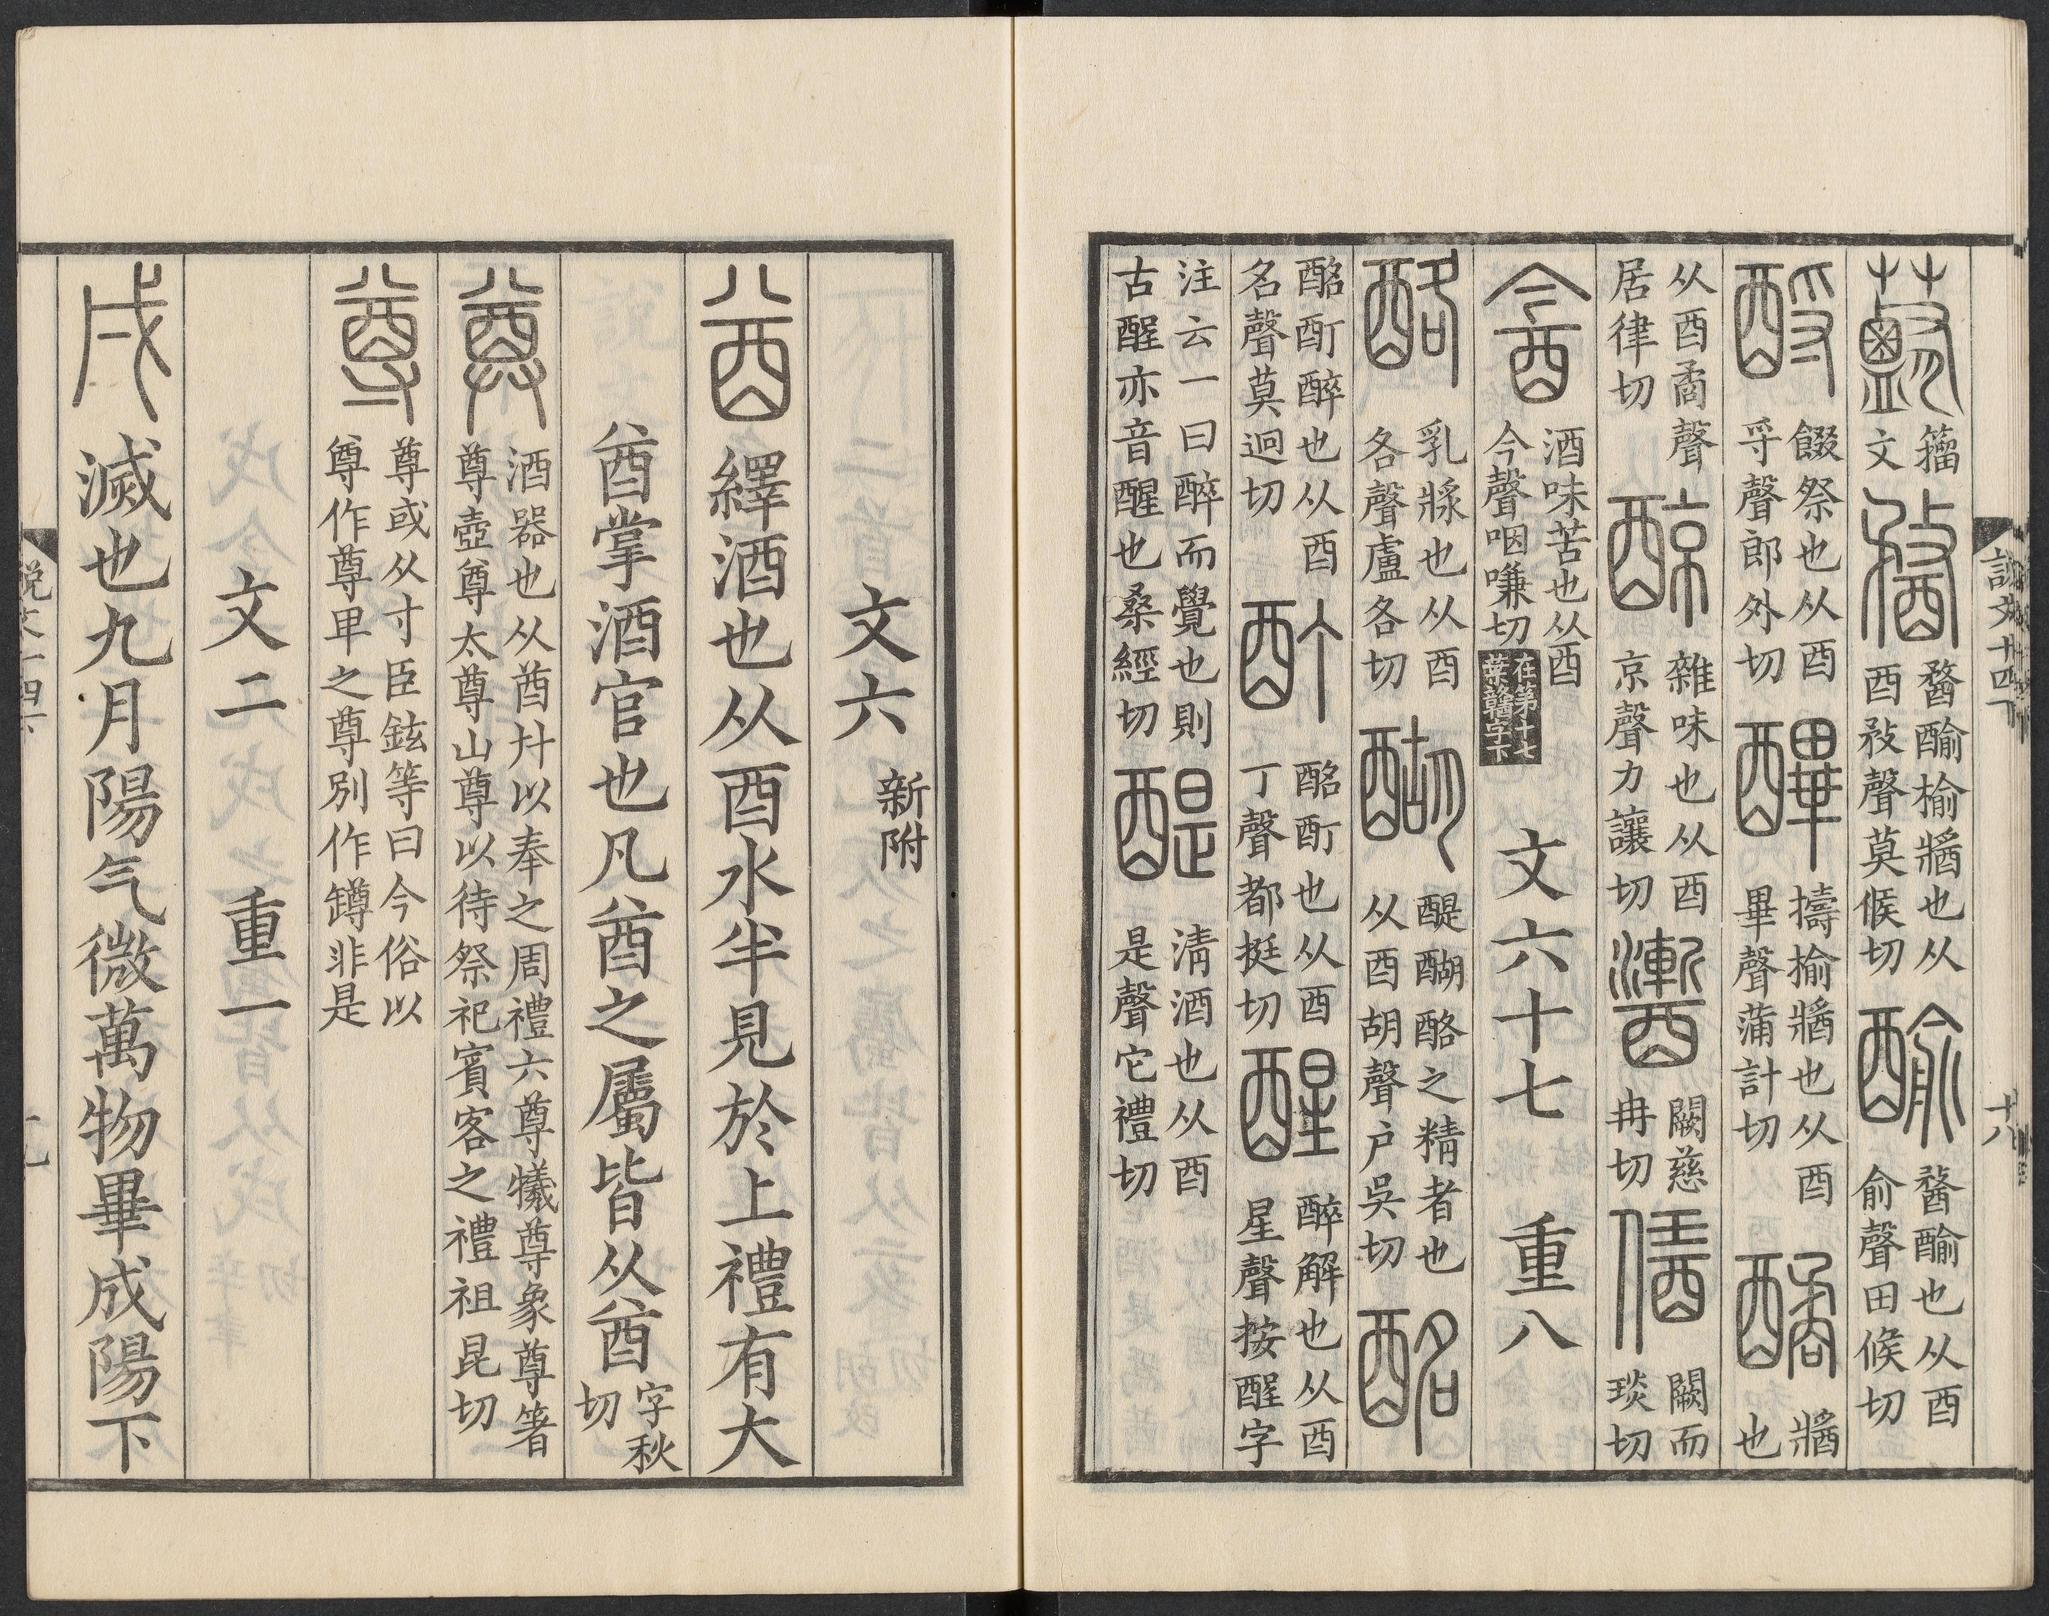 說文十四下
十八
𨣥籀文𤖕𨡭𨢩𨡭醬也从酉敄聲莫候切𨢩𨡭𨢩也从酉俞聲田候切
酹餟祭也从酉寽聲郎外切𨢦擣榆醬也从酉畢聲蒲計切醑醬也
从酉矞聲居律切䣼雜味也从酉京聲力讓切闕慈冉切闕而琰切
酓酒味苦也从酉今聲咽嗛切在第十七葉𨣻字下 文六十七 重八
酪乳漿也从酉各聲盧各切醐醍醐酪之精者也从酉胡聲户吳切酩
酩酊醉也从酉名聲莫迥切酊酩酊也从酉丁聲都挺切醒醉解也从酉星聲按酲字
注云一曰醉而覺也則古酲亦音醒也桑經切醍清酒也从酉是聲它禮切
文六 新附
酋繹酒也从酉水半見於上禮有大
酋掌酒官也凡酋之屬皆从酋字秋切
尊酒器也从酋廾以奉之周禮六尊犧尊象尊著尊壺尊太尊山尊以待祭祀賓客之禮祖昆切
尊尊或从寸臣鉉等曰今俗以尊作尊𤰞之尊別作罇非是
文二 重一
戌滅也九月陽气微萬物畢成陽下
說文十四下
十九